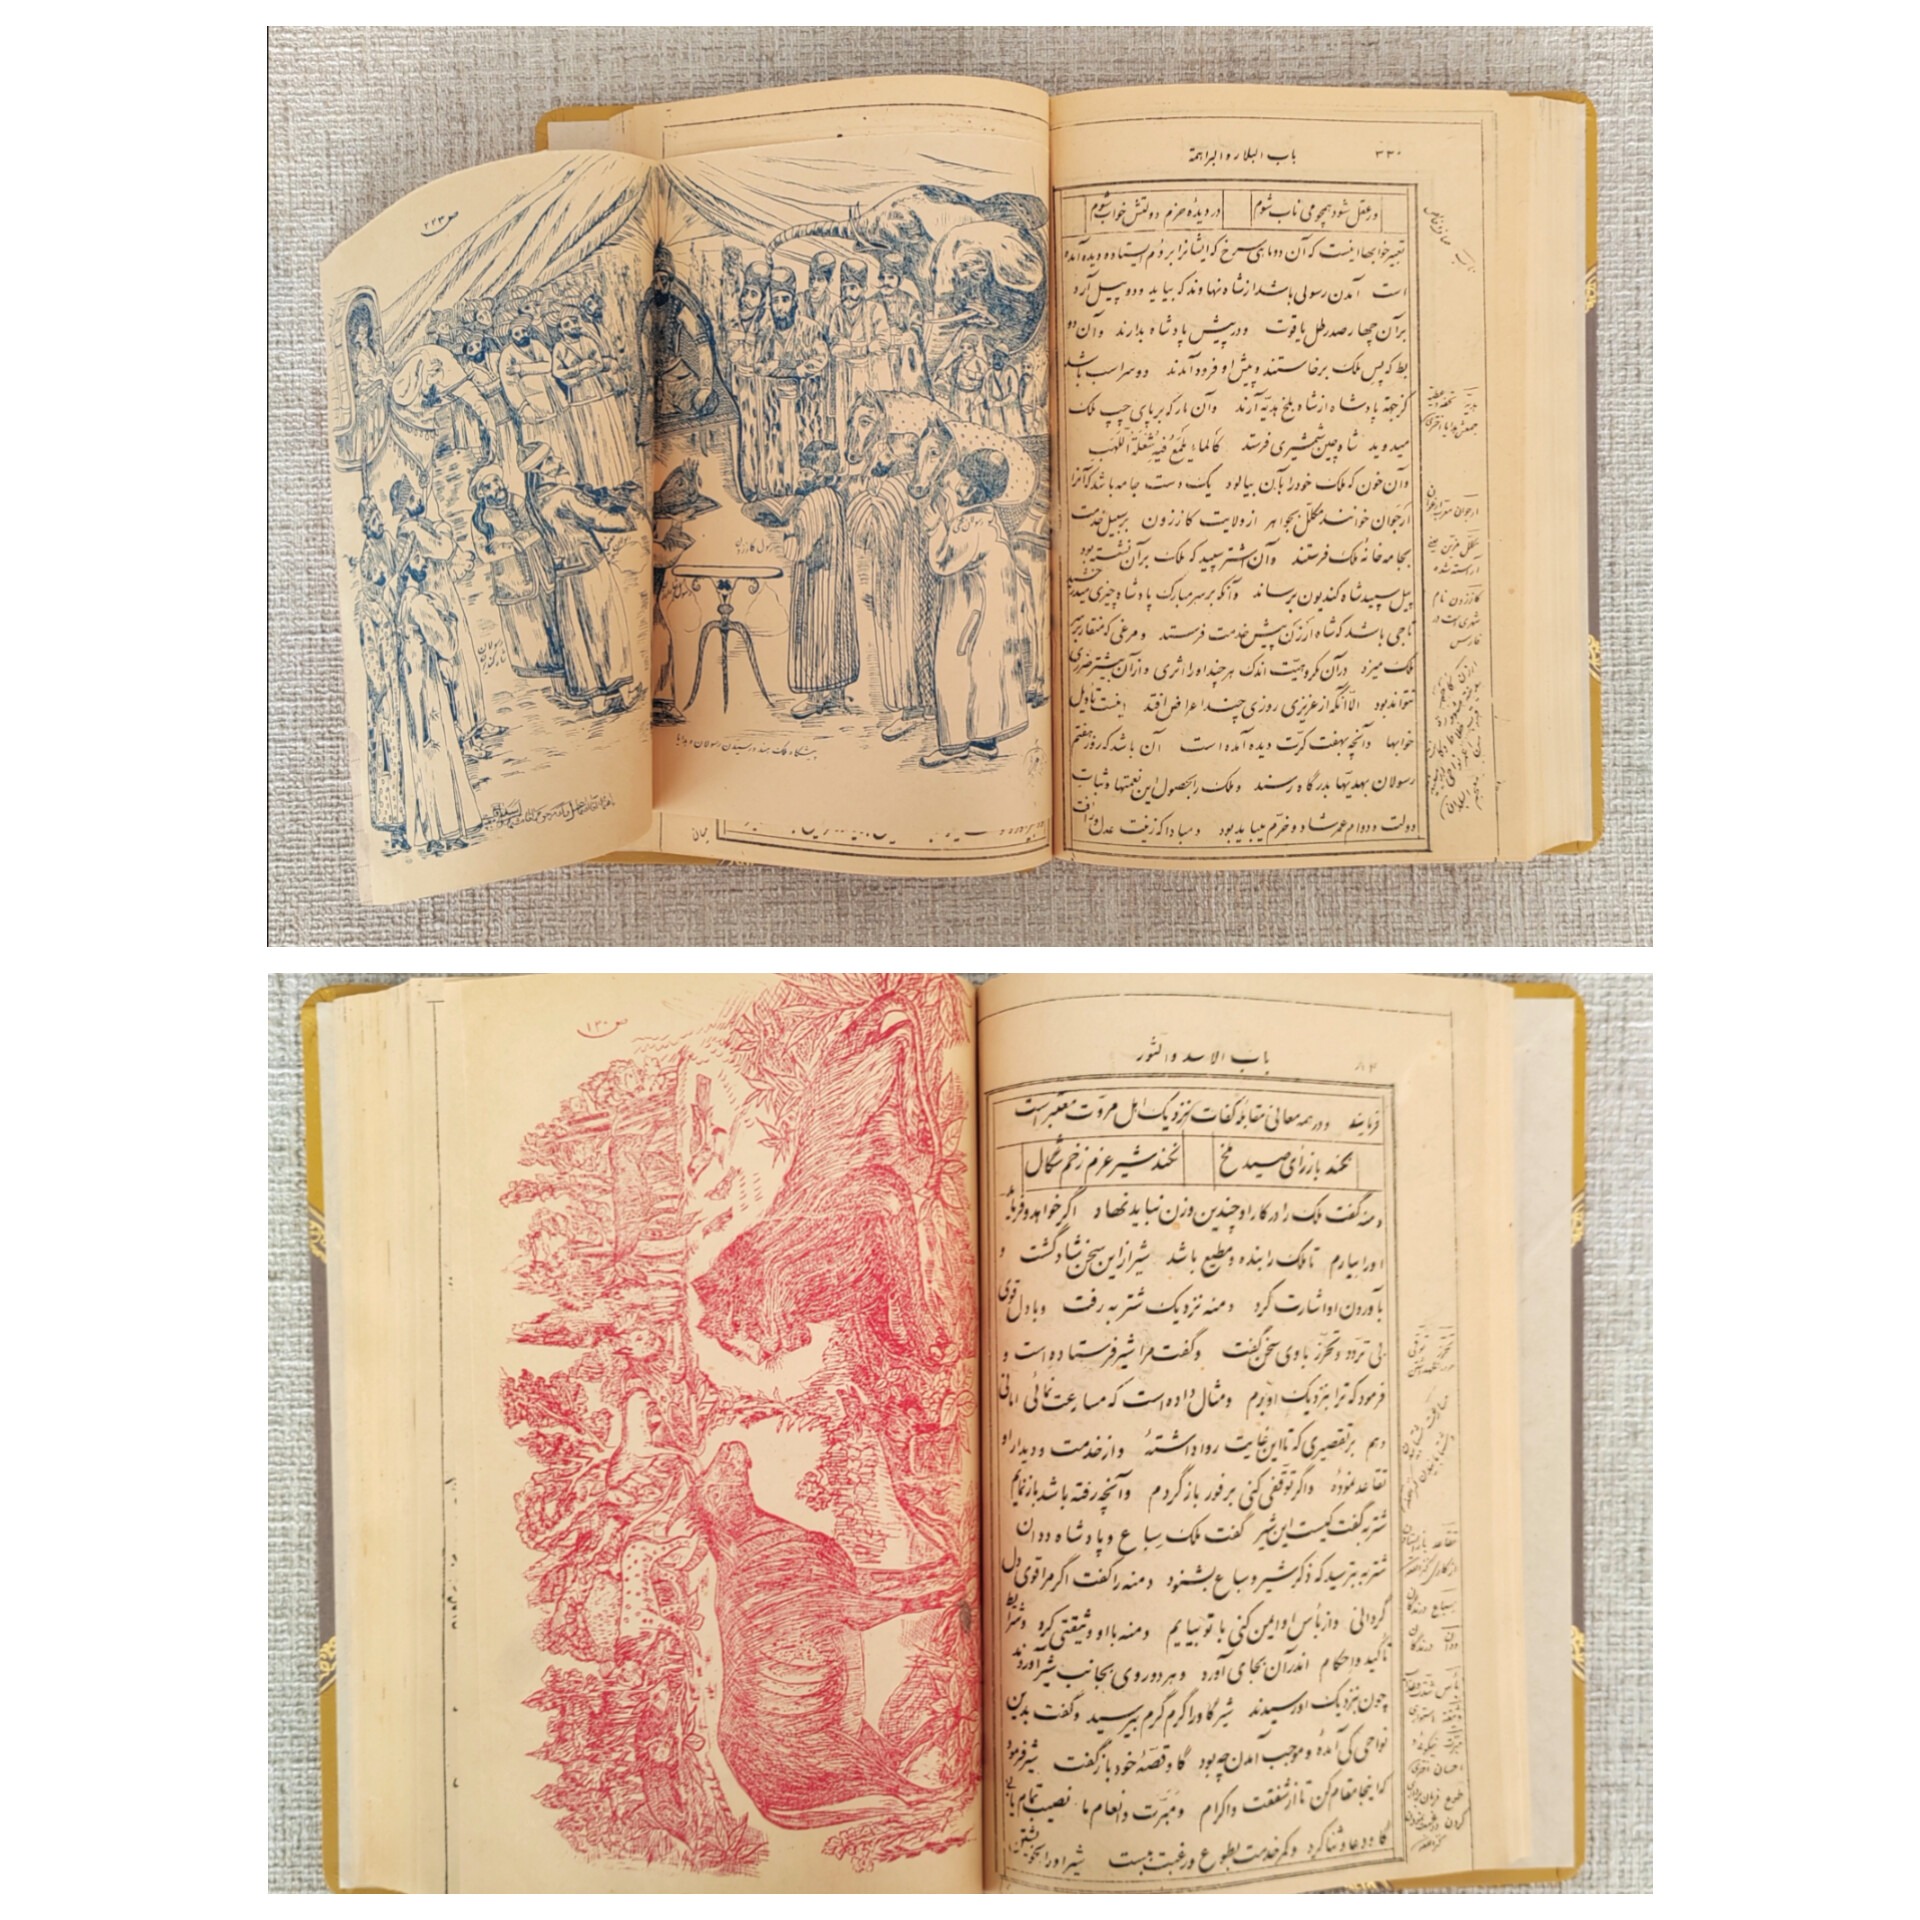 باب البلار والبراهمة
۳۳۰
در عقل شود همچو می ناب شوم
در دیده حزم دولتش خواب شوم
تعبیر خوابها اینست که آن دو ماهی سرخ که ایشانرا بر دم ایستاده دیده آمده
است آمدن رسولی باشد از شاه نهاوند که بیاید و دو پیل آرد
بر آن چهار صد رطل یاقوت و در پیش پادشاه بدارند و آن دو
بط که پس ملک برخاستند و پیش او فرود آمدند دو سر اسب باشد
کز جهة پادشاه از شاه بلخ هدیه آرند و آن مار که بر پای چپ ملک
میدوید شاه چین شمشیری فرستد کالماء یلمع فیه شعلة اللهب
و آن خون که ملک خود را بآن بیالود یک دست جامه باشد که آنرا
ارجوان خوانند مکلل بجواهر از ولایت کازرون بر سبیل خدمت
بجامه خانه ملک فرستند و آن اشتر سپید که ملک بر آن نشسته بود
پیل سپید شاه کندیون برساند و آنکه بر سر مبارک پادشاه چیزی میدرخشید
تاجی باشد که شاه ارزن پیش خدمت فرستد و مرغی که منقار بر سر
ملک میزد در آن مکروهیت اندک هر چند اورا اثری و از آن بیشتر ضرری
نتواند بود الا آنکه از عزیزی روزی چند اعراض افتد اینست تأویل
خوابها و آنچه بهفت کرت دیده آمده است آن باشد که روز هفتم
رسولان بهدیتها بدرگاه رسند و ملک را بحصول این نعمتها و ثبات
دولت و دوام عمر شاد و خرم میباید بود و مبادا که زینت عدل و رأفت
هدیه تحفه و عطیه
کازرون نام
شهری است در
فارس
ص۲۲۳
رسول کازرون
رسولان
پیشگاه ملک هند و رسیدن رسولان و هدایا
جهان
باب الاسد والثور
۸۴
فرمایند و در همه معانی مقابله کفات نزدیک اهل مروت معتبر است
نکند باز رای صید ملخ
نکند شیر عزم زخم شگال
دمنه گفت ملک را در کار او چندین وزن نباید نهاد اگر خواهد و فرماید
اورا بیارم تا ملک را بنده و مطیع باشد شیر از این سخن شاد گشت و
بآوردن او اشارت کرد دمنه نزدیک شتربه رفت و با دل قوی
بی تردد و تحرز باوی سخن گفت و گفت مرا شیر فرستاده است و
فرمود که ترا نزدیک او برم و مثال داده است که مسارعت نمائی امانی
دهم بر تقصیری که تا این غایت روا داشتهٔ و از خدمت و دیدار او
تقاعد نمودهٔ و اگر توقفی کنی بر فور باز گردم و آنچه رفته باشد باز نمایم
شتربه گفت کیست این شیر گفت ملک سباع و پادشاه ددان
شتربه بترسید که ذکر شیر و سباع بشنود دمنه را گفت اگر مرا قوی دل
گردانی و از بأس او ایمن کنی با تو بیایم دمنه با او وثیقتی کرد و شرایط
تأکید و احکام اندر آن بجای آورد و هر دو روی بجانب شیر آوردند
چون نزدیک او رسیدند شیر گاو را گرم گرم بپرسید و گفت بدین
نواحی کی آمدهٔ و موجب آمدن چه بود گاو قصهٔ خود باز گفت شیر فرمود
که اینجا مقام کن تا از شفقت و اکرام و مبرت و انعام ما نصیب تمام یابی
گاو دعا و ثنا کرد و کمر خدمت بطوع و رغبت ببست شیر اورا بخویشتن
سباع درندگان
ددان درندگان
ص۱۳۰